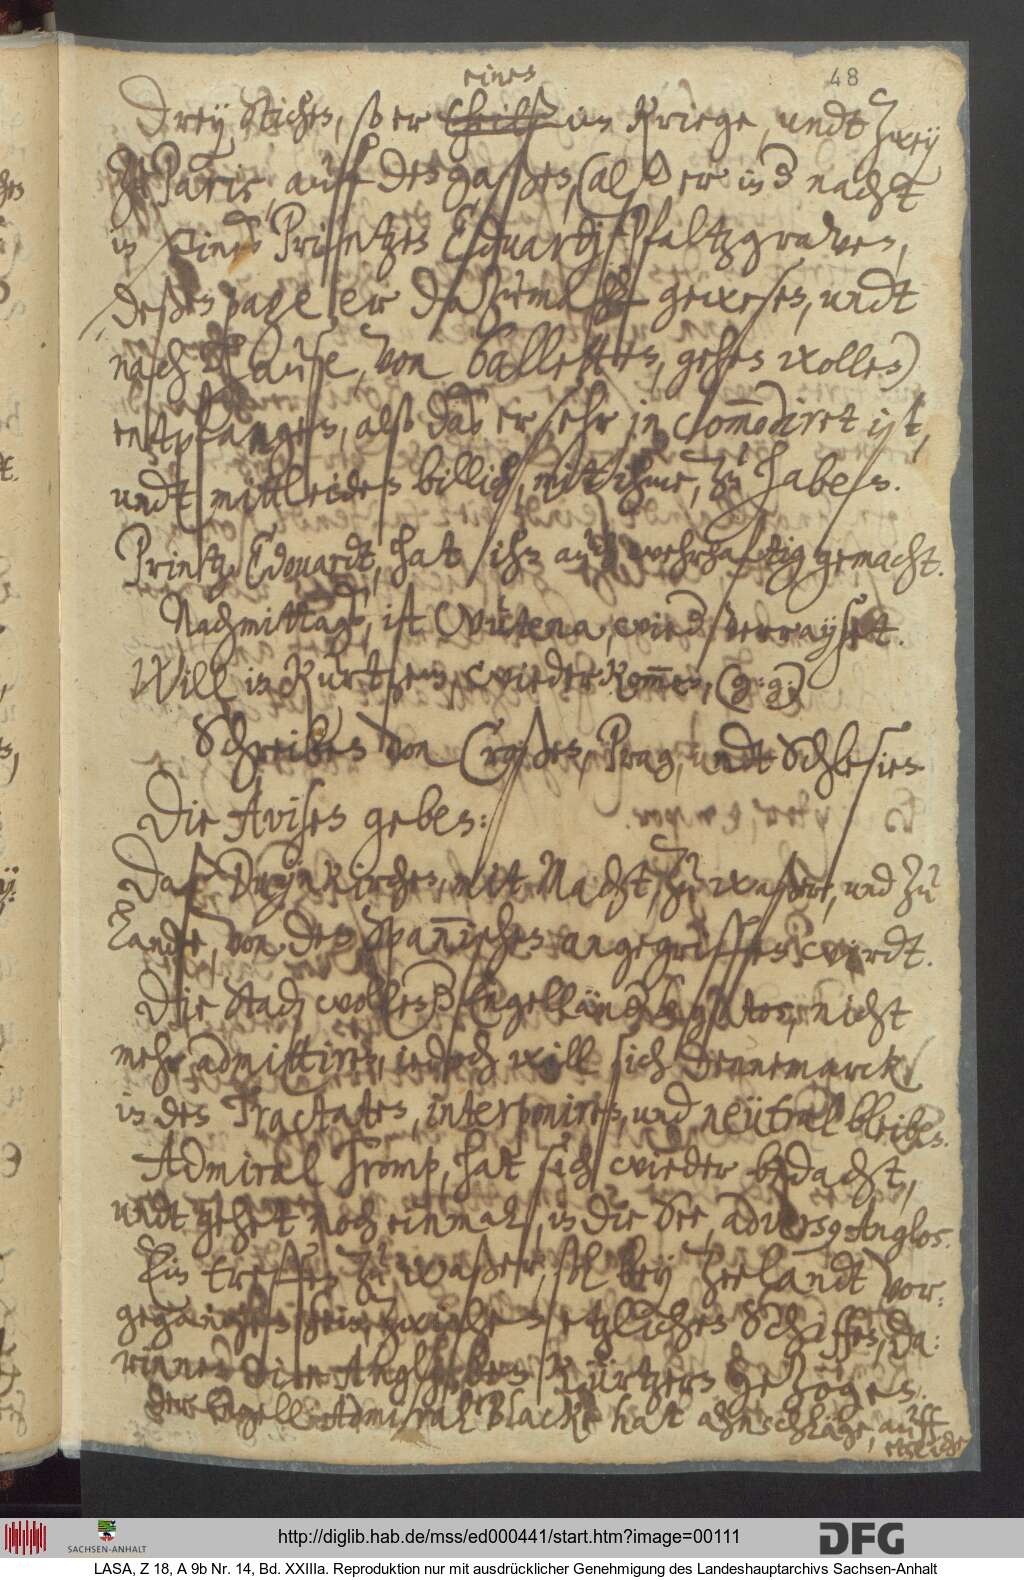 48
eines
Drey Stiches, so er theilß im Kriege, undt zwey
zu Paris, auff der gaßen, (alß er in der nacht
in seines Printzen Eduardj Pfaltzgraven,
deßen page er dazumahl gewesen, undt
nach Hause, von balletten, gehen wollen)
entpfangen, also daß er sehr incom̄odiret ist,
undt mittleiden billich, mit ihme, zu haben.
Printz Edouardt, hat ihn auch wehrhaftig gemacht.
Nachmittags, ist Wutena, wieder verrayset.
Will in Kurtzem, wieder kom̄en, (g: g:)
Schreiben von Croßen, Prag, undt Schlesien
Die Avisen geben:
Daß Duynkirchen, mit Macht, zu waßer, und zu
Lande, von den Span̄ischen angegriffen wirdt.
Die Stadj wollen der Engelländer legaten, nicht
mehr admittiren, iedoch will sich Dennemarck
in den Tractaten, interponiren, und neütral bleiben.
Admiral Tromp, hat sich wieder bedacht,
undt gehet noch einmal, in die See, adversus Anglos.
Ein treffen zu waßer, sol bey Zeelandt vor¬
gegangen sein, zwischen etzlichen Schiffen, da¬
rinnen die Anglj den Kürtzern gezogen.
Der Engell: Admiral Blacke hat ahnschläge, auff
etzliche
http://diglib.hab.de/mss/ed000441/start.htm?image=00111
SACHSEN-ANHALT
DFG
LASA, Z 18, A 9b Nr. 14, Bd. XXIIIa. Reproduktion nur mit ausdrücklicher Genehmigung des Landeshauptarchivs Sachsen-Anhalt